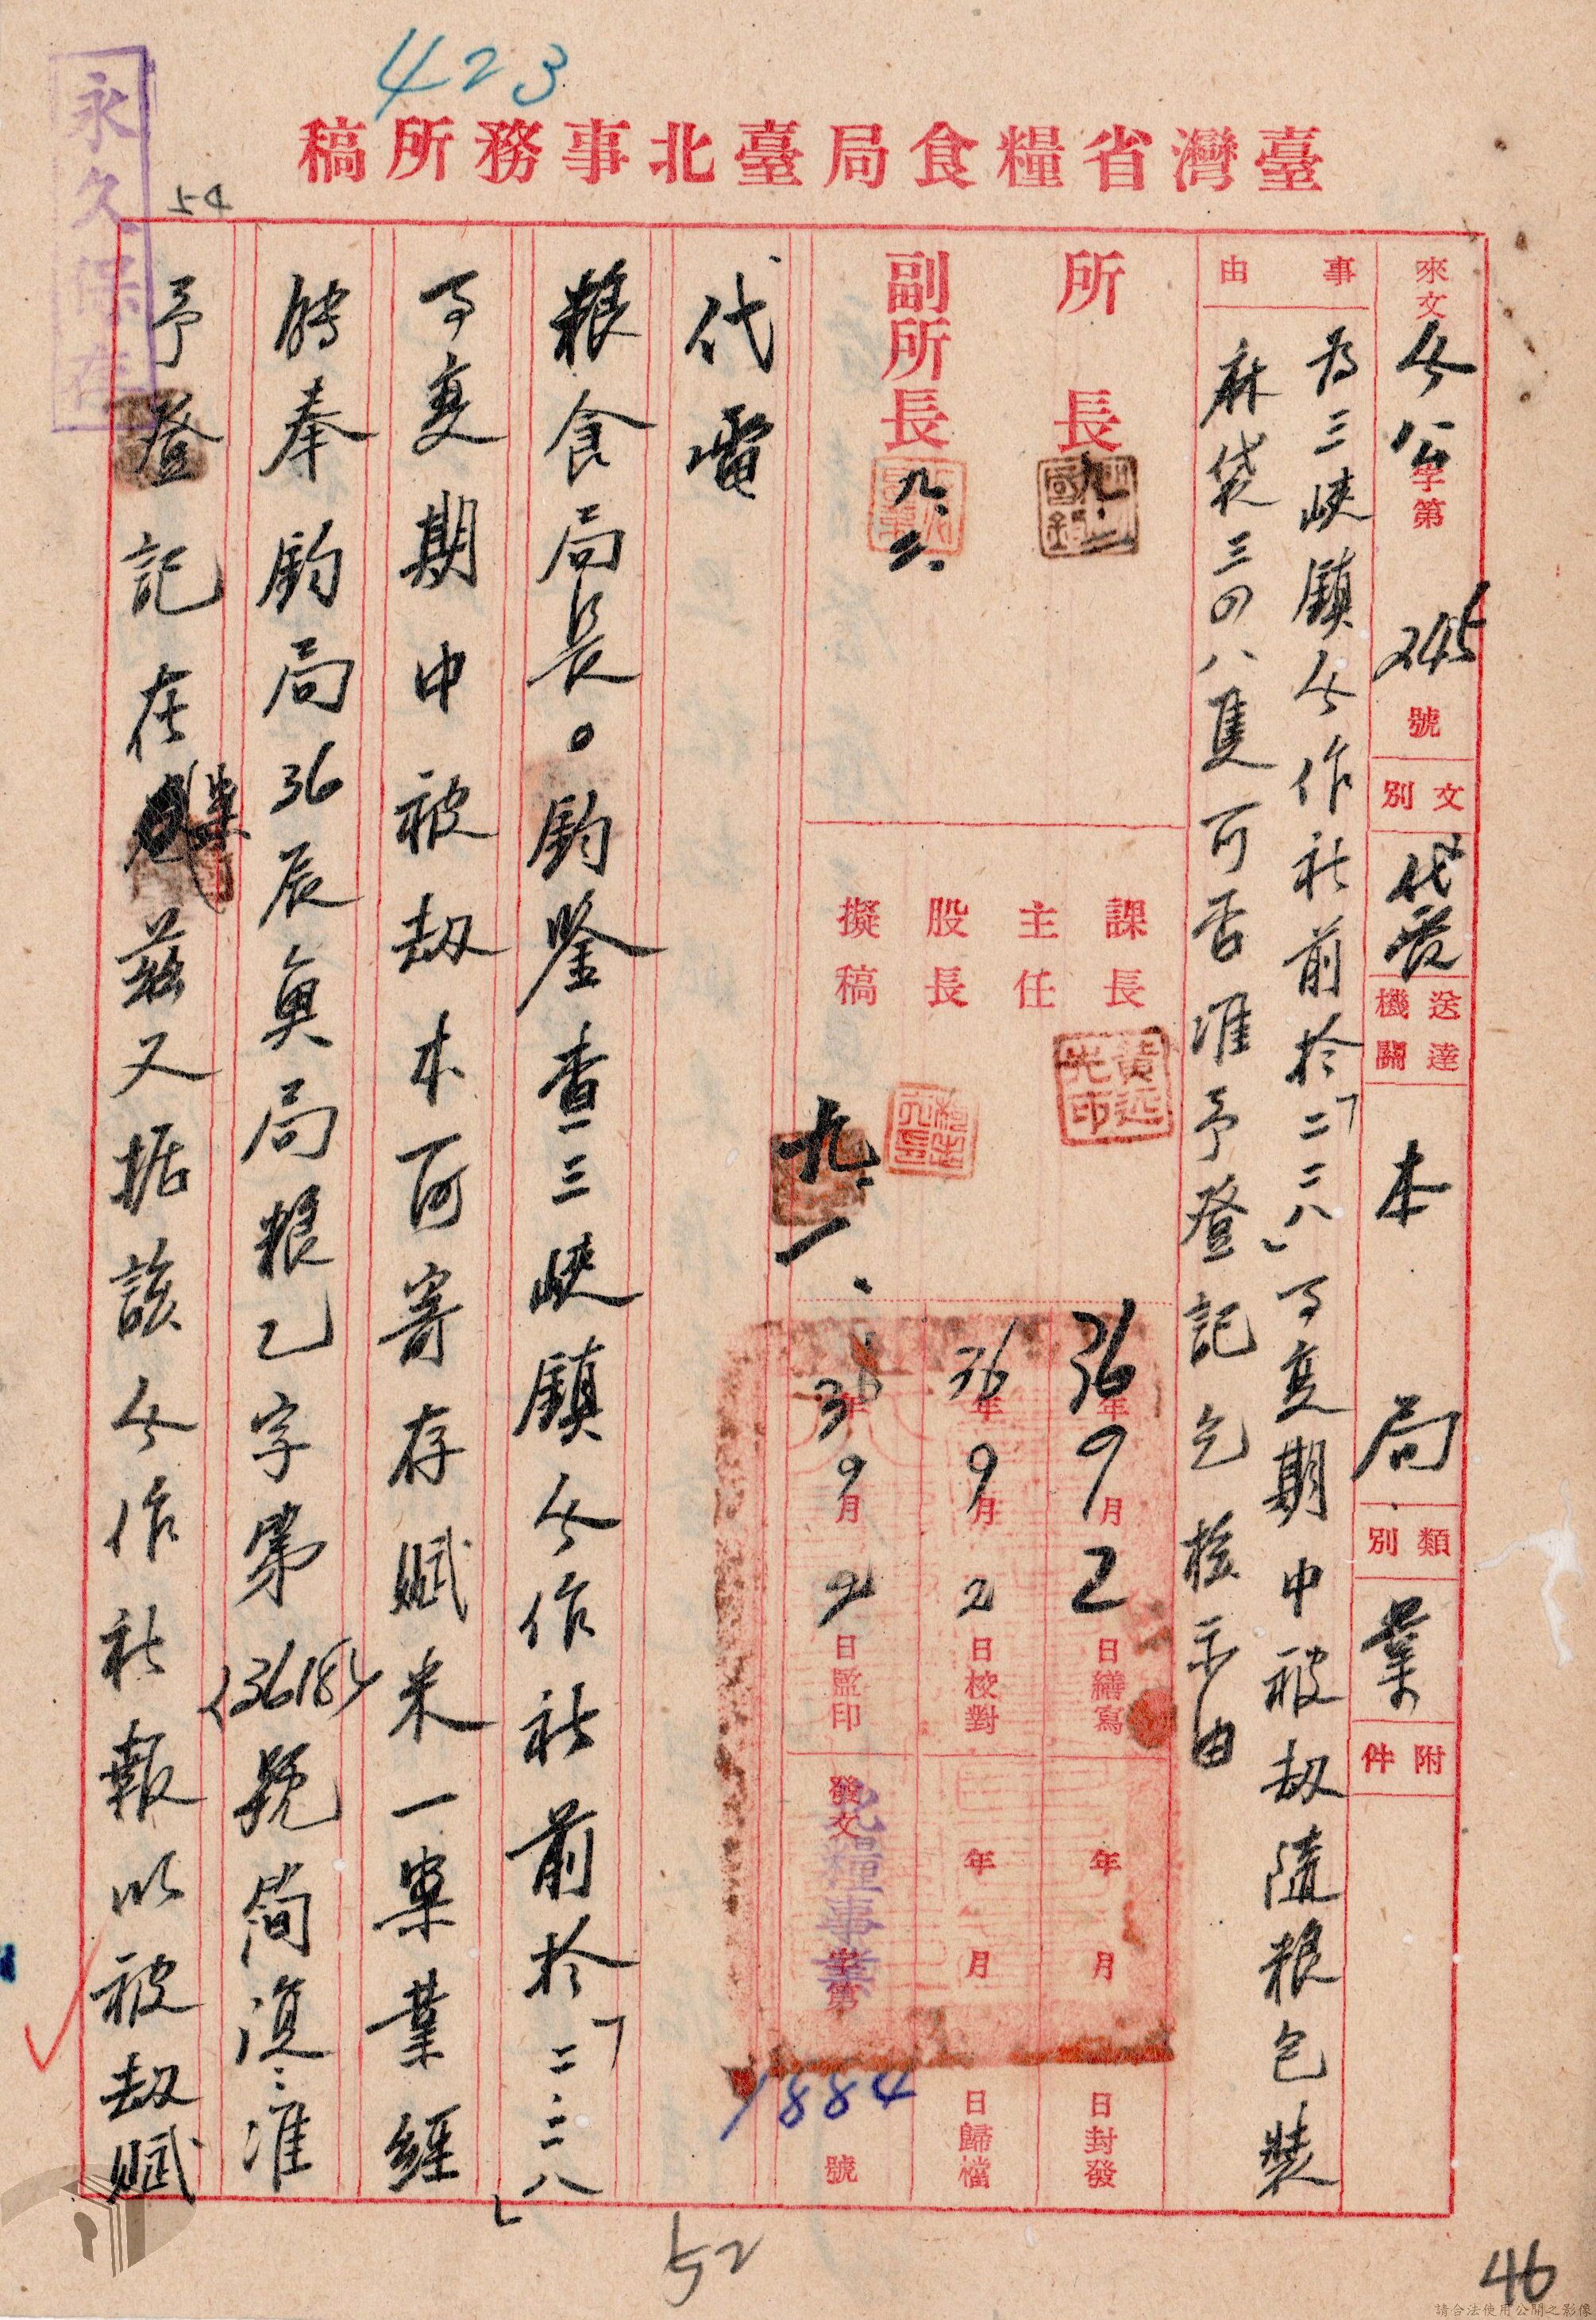 423
永久保存
54
臺灣省糧食局臺北事務所稿
來文
合公字第245號
文別
代電
送達機關
本局
類別
業
附件
事由
為三峽鎮合作社前於「二二八」事変期中被刼隨粮包裝
麻袋三四八隻可否准予登記乞核示由
所長
九.二
副所長
九.二.
課長
黃近光印
主任
股長
擬稿
九.一.
36年9月2日繕寫
36年9月2日校對
36年9月2日監印
年月日封發
年月日歸檔
發文
糧事業
字第
1884
號
代電
粮食局長。鈞鑒查三峽鎮合作社前於「二.二八」
事変期中被刼本所寄存賦米一案業經
轉奉鈞局36辰奠局粮乙字第(36185)號簡復:准
予登記在案茲又据該合作社報以被刼賦
52
46
請合法使用公開之影像